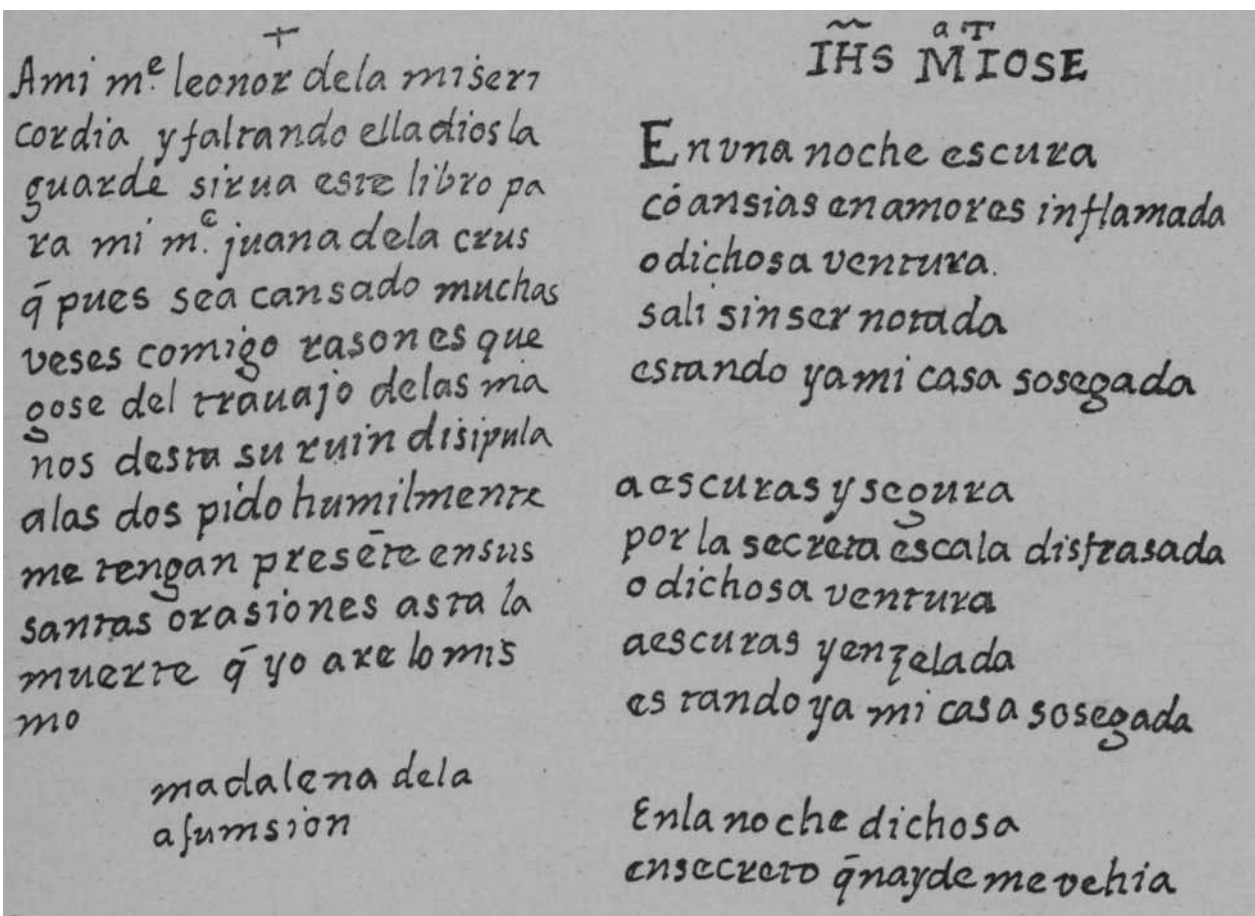 +
Ami mᵉ. leonor dela miseri
cordia y faltando ella dios la
guarde sirua este libro pa
ra mi mᵉ. juana dela crus
q̄ pues sea cansado muchas
veses comigo rason es que
gose del trauajo delas ma
nos desta su ruin disipula
alas dos pido humilmente
me tengan presēte ensus
santas orasiones asta la
muerte q̄ yo are lo mis
mo
madalena dela
asumsion
IHS MᵃIᵀOSE
En vna noche escura
cō ansias en amores inflamada
o dichosa ventura.
sali sin ser notada
estando ya mi casa sosegada
a escuras y segura
por la secreta escala disfrasada
o dichosa ventura
aescuras y enzelada
es tando ya mi casa sosegada
Enla noche dichosa
ensecreto q̄nayde me vehia